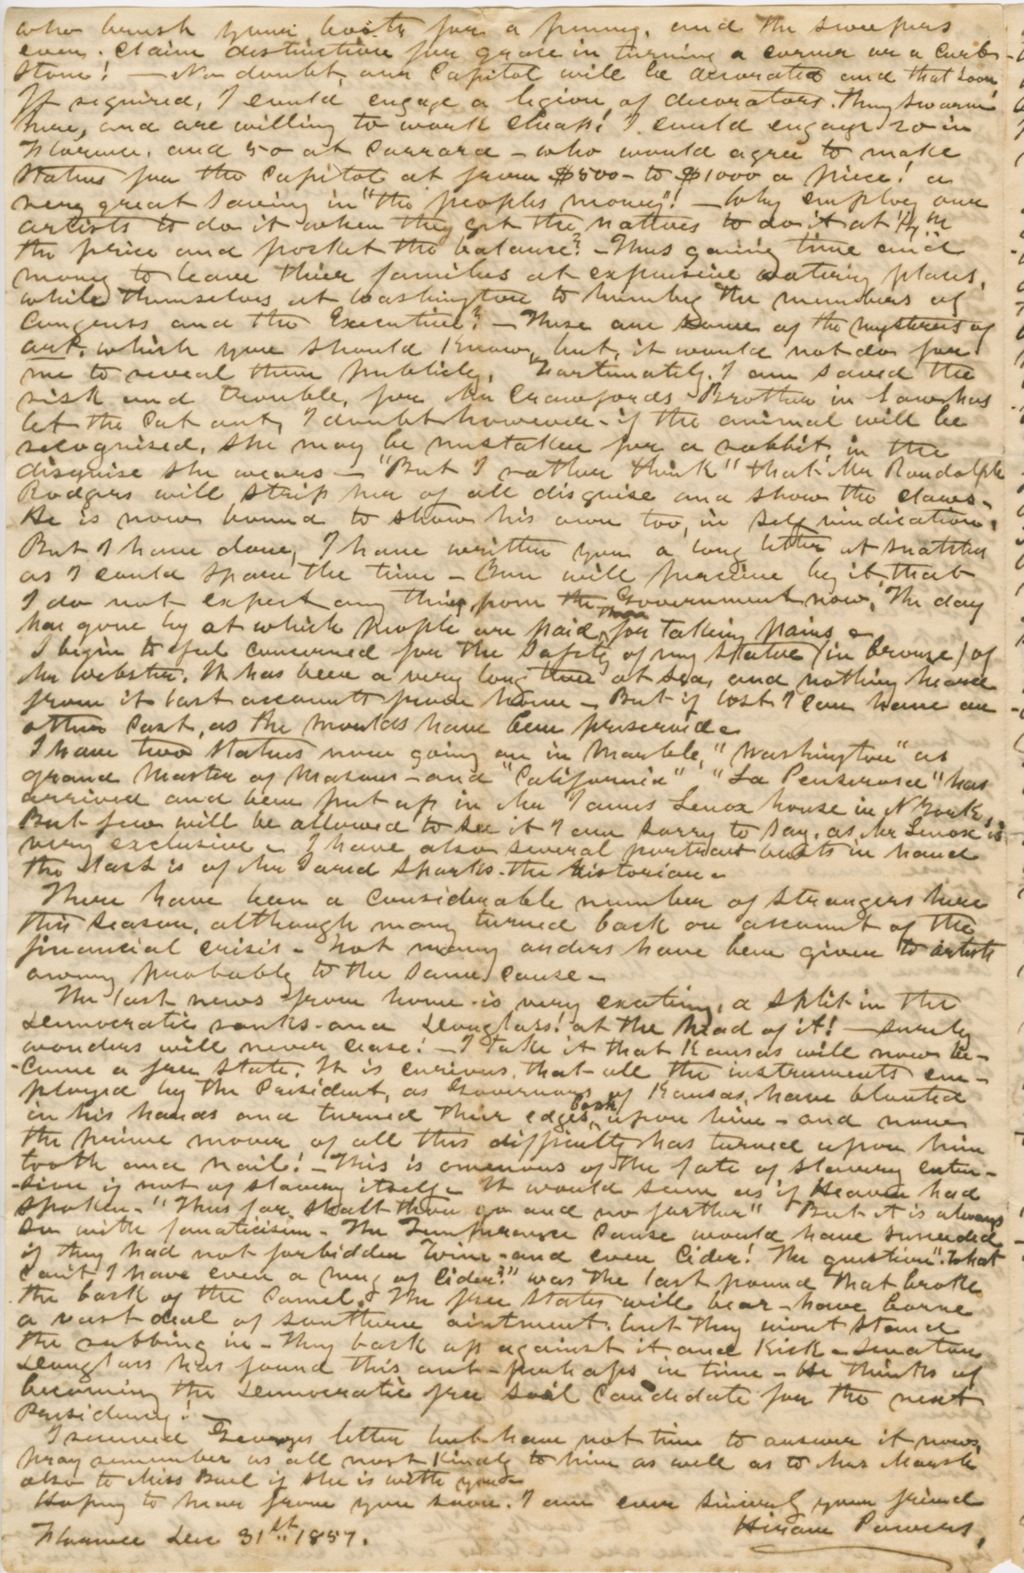 who brush your boots for a penny, and the sweepers
even. Claim distinction for grace in turning a corner or a Curb-
stone! — No doubt, our Capitol will be decorated and that soon
If required, I could engage a legion of decorators. They swarm
here, and are willing to work cheap! I could engage 20 in
Florence, and 50 at Carrara – who would agree to make
Statues for the Capitol at from $500 – to $1000 a piece! a
very great saving in "the peoples money"! — Why employ our
artists to do it when they get the natives to do it at
the price and pocket the balance? – Thus gaining time and
money to leave their families at expensive watering places,
while themselves at Washington to humbug the members of
Congress and the Executive? – These are some of the mysteries of
art, which you should know, but, it would not do for
me to reveal them publicly. Fortunately, I am saved the
risk and trouble, for Mr Crawfords Brother in Law has
let the Cat out, I doubt however – if the animal will be
recognised, She may be mistaken for a rabbit, in the
disguise she wears – "But I rather think" that Mr Randolph
Rodgers will strip her of all disguise and show the claws –
He is now bound to show his own too, in self vindication.
But I have done, I have written you a long letter at snatches
as I could spare the time – You will perceive by it, that
I do not expect any thing from the Government now, The day
has gone by at which People are paid for taking pains –
I begin to feel concerned for the Safety of my Statue (in bronze) of
Mr Webster. It has been a very long time at Sea, and nothing heard
from it last accounts from home – But if lost I can have an-
other Cast, as the moulds have been preserved –
I have two Statues now going on in Marble, "Washington" as
grand Master of Masons – and "California" "La Penserosa" has
arrived and been put up in Mr James Lenox house in N York,
But few will be allowed to see it I am sorry to say, as Mr Lenox is
very exclusive – I have also several portrait busts in hand
the last is of Mr Jared Sparks the historian –
There have been a considerable number of Strangers here
this season, although many turned back on account of the
financial crisis – Not many orders have been given to artists
owing probably to the same cause –
The last news from home is very exciting, a split in the
Democratic ranks – and Douglass! at the head of it! – surely
wonders will never cease! – I take it that Kansas will now be-
-come a free State. It is curious, that all the instruments em-
ployed by the President, as Governors of Kansas, have blunted
in his hands and turned their edges back upon him – and now
the prime mover of all this difficulty has turned upon him
tooth and nail! – This is ominous of the fate of slavery exten-
-sion if not of slavery itself – It would seem as if Heaven had
spoken – "Thus far shalt thou go and no farther" But it is always
so with fanaticism – The Temperance Cause would have succeeded
if they had not forbidden Wine – and even Cider! The question "What
can't I have even a mug of Cider?" was the last pound that broke
the back of the Camel. The free States will bear – have borne
a vast deal of southern ointment, but they wont stand
the rubbing in – they back up against it and Kick – Senator
Douglass has found this out – perhaps in time – He thinks of
becoming the Democratic free soil Candidate for the next
Presidency! –
I received Georges letter but have not time to answer it now,
Pray remember us all most kindly to him as well as to Mrs Marsh
also to Miss Buel if she is with you –
Hoping to hear from you soon. I am ever sincerely your friend
Hiram Powers,
Florence Dec 31st 1857.